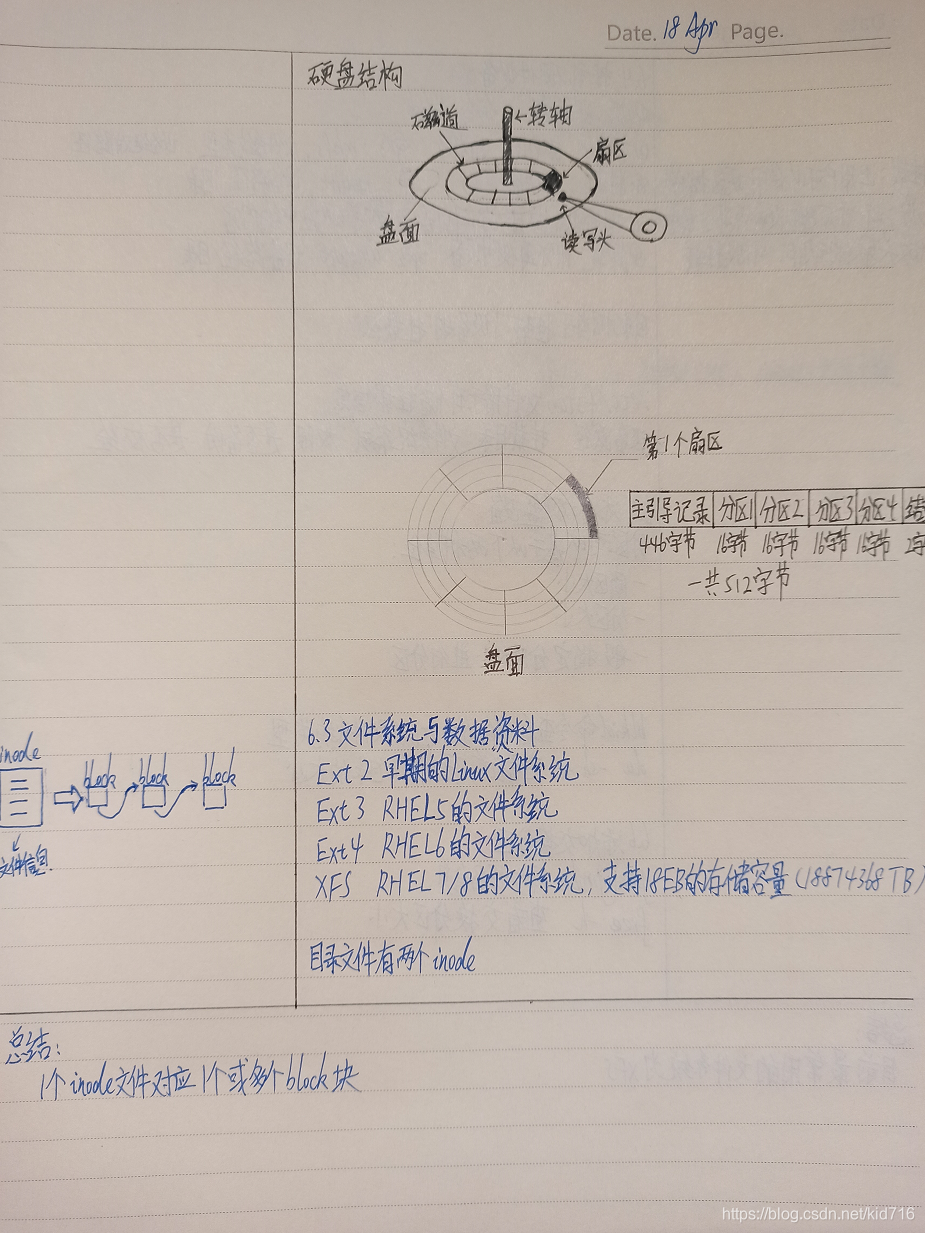 Date. 18 Apr Page.
硬盘结构
磁道
转轴
扇区
盘面
读写头
第1个扇区
主引导记录 分区1 分区2 分区3 分区4
446字节 16字节 16字节 16字节 16字节
一共512字节
盘面
6.3 文件系统与数据资料
Ext 2 早期的Linux文件系统
Ext 3 RHEL5的文件系统
Ext4 RHEL6的文件系统
XFS RHEL7/8的文件系统，支持18EB的存储容量（18874368TB）
目录文件有两个inode
inode
block block block
文件信息
总结：
1个inode文件对应1个或多个block块
https://blog.csdn.net/kid716